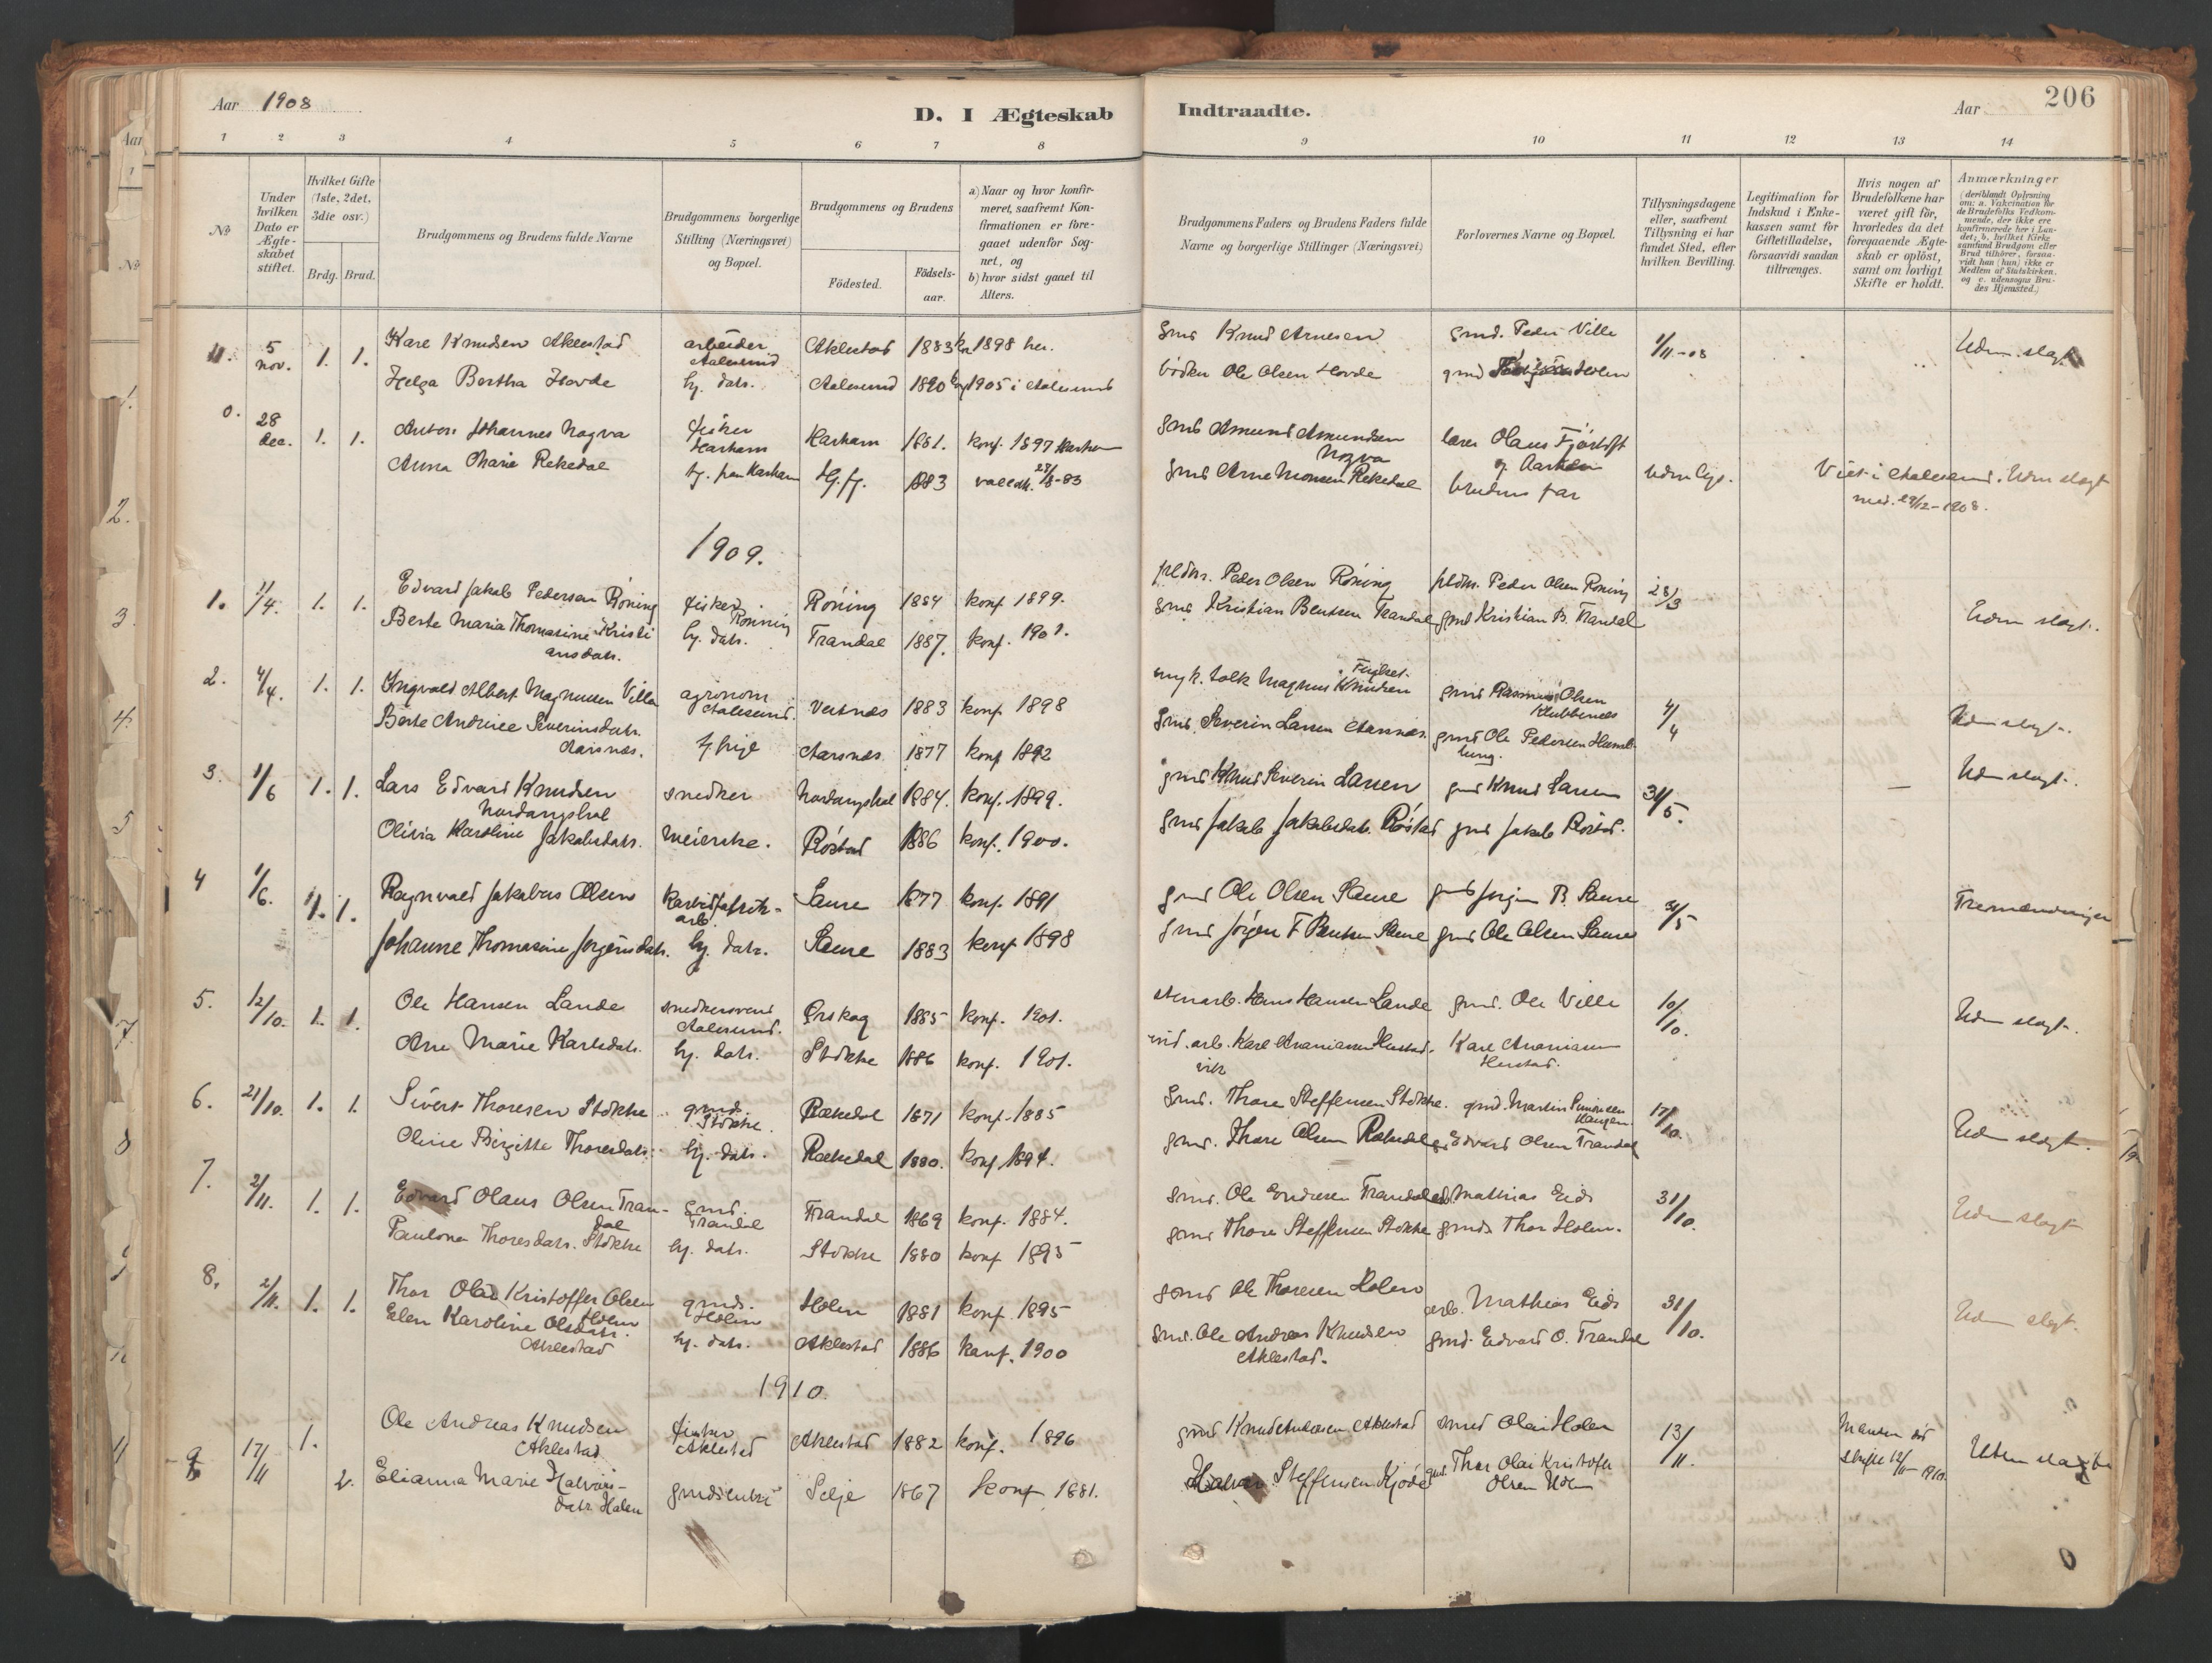 Aar 1908
D. I Ægteskab
Indtraadte.
Aar
206
1 2 3 4 5 6 7 8 9 10 11 12 13 14
No
Under hvilken Dato er Ægteskabet stiftet.
Hvilket Gifte (1ste, 2det, 3die osv.)
Brdg. Brud.
Brudgommens og Brudens fulde Navne
Brudgommens borgerlige Stilling (Næringsvei) og Bopæl.
Brudgommens og Brudens
Födested.
Födselsaar.
a) Naar og hvor konfirmeret, saafremt Konfirmationen er foregaaet udenfor Sognet, og
b) hvor sidst gaaet til Alters.
Brudgommens Faders og Brudens Faders fulde Navne og borgerlige Stillinger (Næringsvei)
Forlovernes Navne og Bopæl.
Tillysningsdagene eller, saafremt Tillysning ei har fundet Sted, efter hvilken Bevilling.
Legitimation for Indskud i Enkekassen samt for Giftetilladelse, forsaavidt saadan tiltrænges.
Hvis nogen af Brudefolkene har været gift för, hvorledes da det foregaaende Ægteskab er oplöst, samt om lovligt Skifte er holdt.
Anmærkninger
(deriblandt Oplysning om: a. Vakcination for de Brudefolks Vedkommende, der ikke ere konfirmerede her i Landet; b. hvilket Kirkesamfund Brudgom eller Brud tilhörer, forsaavidt han (hun) ikke er Medlem af Statskirken, og c. udensogns Brudes Hjemsted.)
11. 5 nov. 1. 1. Kare Knudsen Aklestad arbeider Aalesund Aklestad 1883 1898 her. gmd Knud Arnesen gmd. Peder Ville 1/11-08
Helga Bertha Hovde hj. datr. Aalesund 1890 1905 i Aalesund bödker Ole Olsen Hovde gmd Holen
28 dec. 1. 1. Anton Johannes Nogva fisker Harham Harham 1881. konf. 1897 Harham gmd Amund Amundsen Nogva lærer Olaus Fjørtoft
Anna Marie Rekedal hj. fra Harham 1883 gmd Arne Monsen Rekedal brudens far Viet i Aalesund. Uden slægt
med. 29/12-1908.
1909.
1. 11/4. 1. 1. Edvard Jakob Pedersen Röning fisker Röning Röning 1884 konf 1899. pldm. Peder Olsen Röning pldm. Peder Olsen Röning 28/3
Berte Maria Thomasine Kristiansdatr. hj. datr. Trandal 1887. konf. 1901. gmd Kristian Bentsen Trandal gmd Kristian B. Trandal Uden slægt.
2. 4/4. 1. 1. Ingvald Albert Magnusen Ville agronom Aalesund. Vertnes 1883 konf 1898 Magnus Knudsen gmd Rasmus Olsen Klubbenes 4/4
Berte Andrine Severinsdatr. Aarsnes. Aarsnes 1877 konf 1892 gmd. Severin Larsen Aarsnes. gmd Ole Pedersen Uden slægt.
3. 1/6 1. 1. Lars Edvard Knudsen snedker 1884. konf. 1899. gmd Knud Severin Larsen gmd Knud Larsen 31/5. Uden slægt.
Olivia Karoline Jakobsdatr. meierske. Röstad 1886 konf. 1900. gmd Jakob Jakobsdatr. Röstad gmd Jakob Röstad.
4 1/6. 1. 1. Ragnvald Jakobus Olsen Karbidfabrik-arb. Saure 1877 konf. 1891 gmd Ole Olsen Saure gmd Jørgen B. Saure 31/5 Tremenninger
Johanne Thomasine Jørgensdatr. hj. datr. Saure 1883 konf 1898 gmd Jørgen F Bentsen Saure gmd Ole Olsen Saure
5. 12/10. 1. 1. Ole Hansen Lande snedkersvend Aalesund. Ørskog 1885 konf. 1901. stenarb. Hans Hansen Lande gmd. Ole Ville 10/10. Uden slægt.
Ane Marie Karlsdatr. hj. datr. Stokke 1886 konf. 1901. ind. arb. Karl Ananiasen Hustad. Karl Ananiasen Hustad.
6. 21/10. 1. 1. Sivert Thoresen Stokke gmd. Stokke. Rekedal 1871 konf. 1885 gmd. Thore Steffensen Stokke. gmd. Martin Simonsen 17/10.
Oline Birgitte Thoresdatr. hj. datr. Rekedal 1880. konf 1894. gmd. Thore Olsen Rekedal Edvard Olsen Trandal Uden slægt.
7. 2/11. 1. 1. Edvard Olaus Olsen Trandal gmd. Trandal Trandal 1869 konf. 1884. gmd. Ole Endresen Trandal Mathias Eid 31/10. Uden slægt
Paulone Thoresdatr. Stokke hj. datr. Stokke 1880 konf 1895 gmd Thore Steffensen Stokke gmd. Thor Holen.
8. 2/11. 1. 1. Thor Olai Kristoffer Olsen Holen gmd. Holen Holen 1881 konf. 1895 gmd Ole Thoresen Holen arb. Mathias Eid 31/10. Uden slægt.
Elen Karoline Olsdatr. Aklestad hj. datr. Aklestad 1886 konf. 1900 gmd. Ole Andreas Knudsen Aklestad. gmd. Edvard O. Trandal
1910.
9 17/11 1. Ole Andreas Knudsen Aklestad fisker Aklestad Aklestad 1882 konf. 1896 gmd Knud Aklestad smed Olai Holen 13/11. Manden död
2. Elianna Marie Halvorsdatr. Holen gmdsenke Selje 1867 konf 1881. Halvor Steffensen Kjöde gmd. Thor Olai Kristoffer Olsen Holen skifte 12/11-1910. Uden slægt